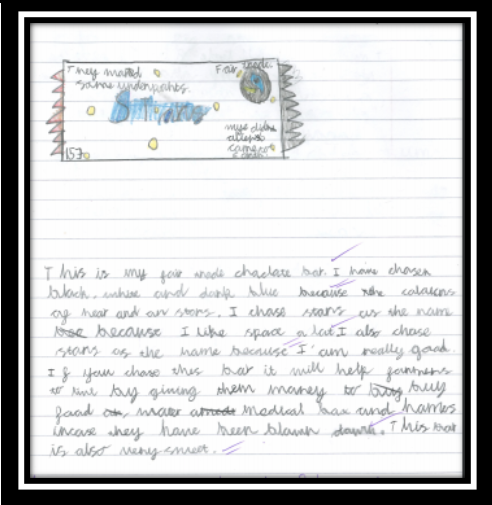 They mated
same underpahes.
Fair trade.
Stars
mye didnt
allerso
came to
153
This is my fair trade chaclate bar. I have chasen
black, white and dark blue because the calaurs
of near and are stars. I chase stars as the name
because I like space a lat I also chase
stars as the name because I am really good.
If you chase this bar it will help farmers
to live by giving them maney to buy
faad, water medical bax and hames
incase they have been blawn dawn. This bar
is also very sweet.